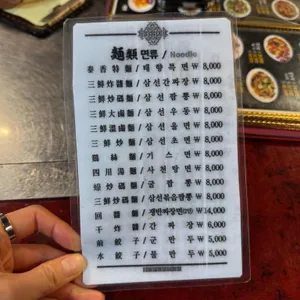 麵類 면류 / Noodle
泰香特麵 / 태향특면 ₩ 8,000
三鮮炸醬麵 / 삼선간짜장 ₩ 8,000
三鮮炒碼麵 / 삼선짬뽕 ₩ 8,000
三鮮大滷麵 / 삼선우동 ₩ 8,000
三鮮溫滷麵 / 삼선울면 ₩ 8,000
三鮮炒麵 / 삼선초면 ₩ 8,000
鷄絲麵 / 기스면 ₩ 8,000
四川湯麵 / 사천탕면 ₩ 8,000
炒碼麵 / 굴짬뽕 ₩ 8,000
三鮮炒碼麵 / 삼선볶음짬뽕 ₩ 8,000
回醬麵 / 쟁반짜장면 ₩ 14,000
干炸醬 / 간짜장 ₩ 6,000
煎餃子 / 군만두 ₩ 5,000
水餃子 / 물만두 ₩ 5,000